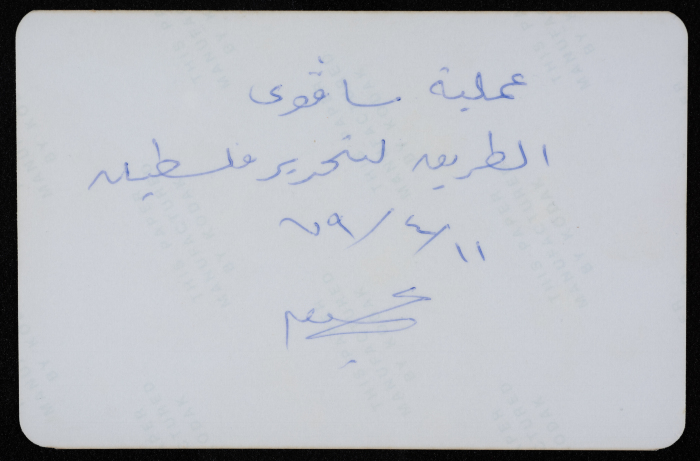 عملية ساڤوي
الطريق لتحرير فلسطين
١١/٤/٧٩
THIS PAPER
MANUFACTURED
BY KODAK